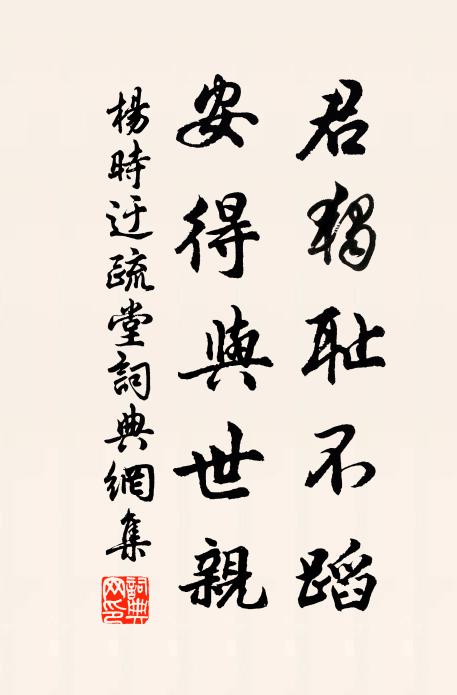 君獨恥不蹈
安得與世親
楊時迂疏堂詞典網集
詞典網印